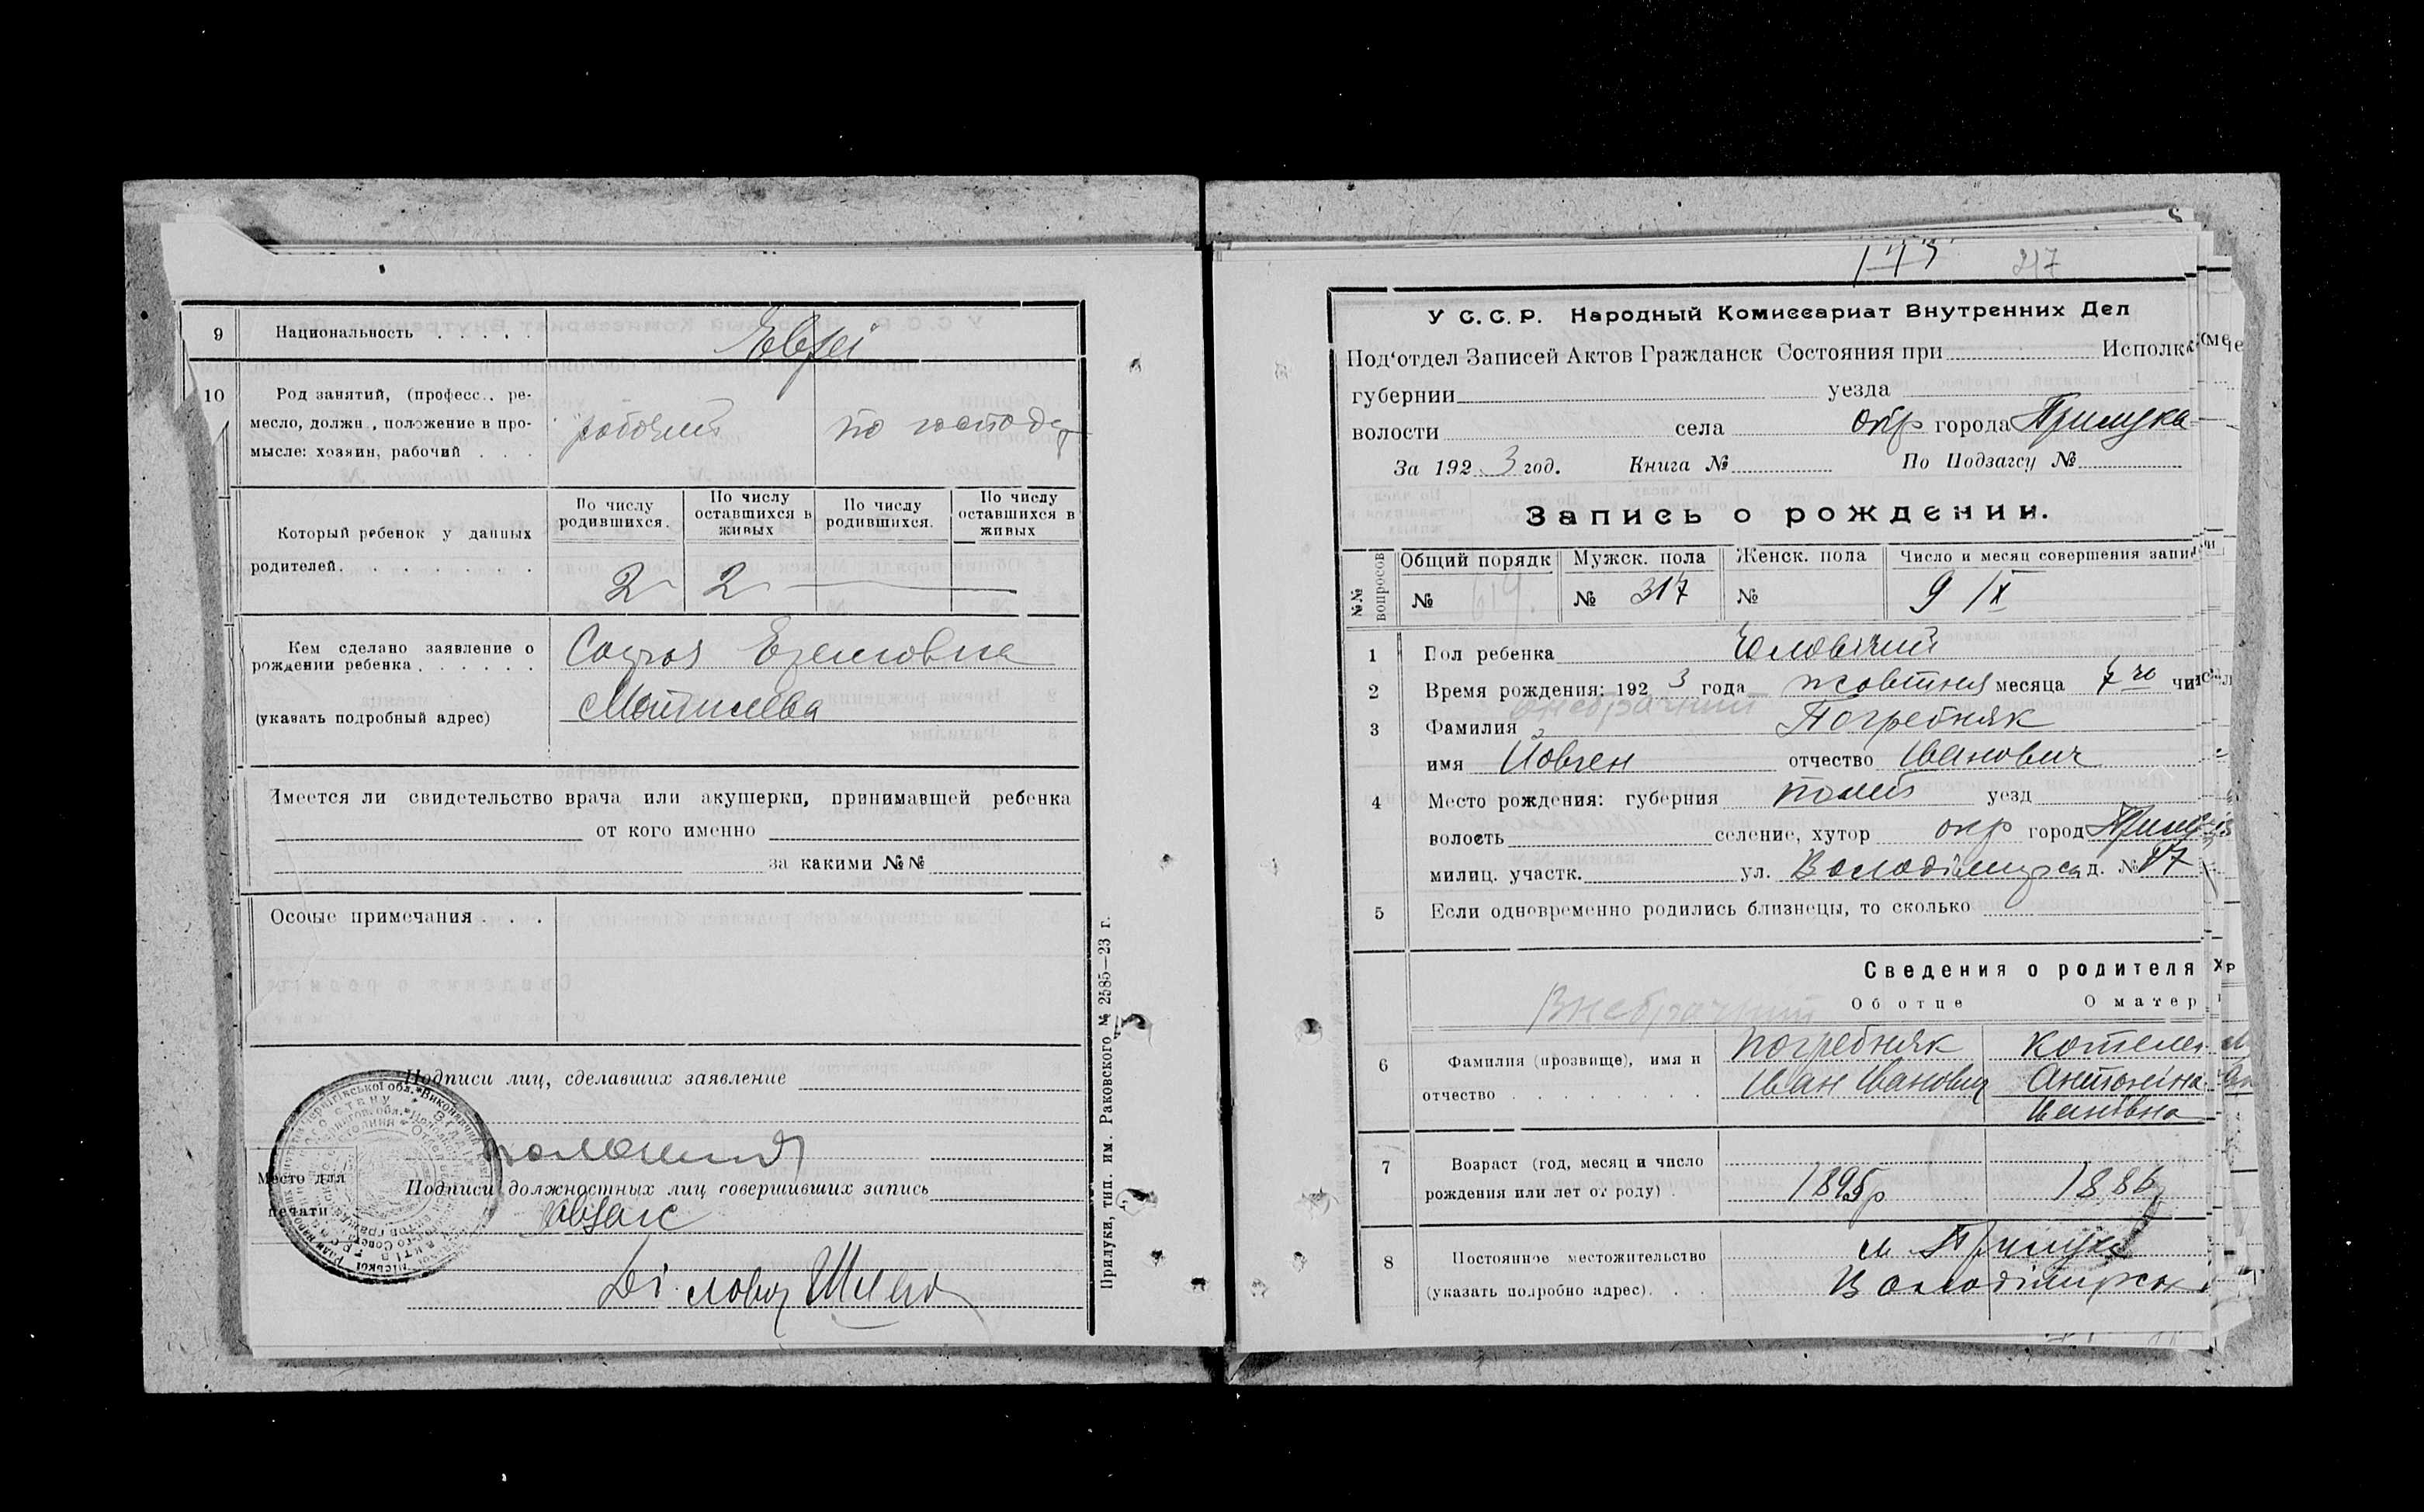 9 Национальность . . . . . Евреї
10 Род занятий, (професс.. ре-
месло, должн., положение в про-
мысле: хозяин, рабочий . . .
робочий
по господ
Который ребенок у данных
родителей. . . . . . . .
По числу родившихся.
По числу оставшихся в живых
По числу родившихся.
По числу оставшихся в живых
2 2
Кем сделано заявление о
рождении ребенка . . . . . .
(указать подробный адрес)
Могилева
Имеется ли свидетельство врача или акушерки, принимавшей ребенка
от кого именно
за какими №№
Особые примечания . . .
Подписи лиц, сделавших заявление
Место для
печати
Подписи должностных лиц совершивших запись
Завзагс
Діловод
Прилуки, тип. им. Раковского № 2585—23 г.
173 217
У С.С.Р. Народный Комиссариат Внутренних Дел
Под‘отдел Записей Актов Гражданск Состояния при Исполк
губернии уезда
волости села окр города Прилука
За 192 3 год. Книга № По Подзагсу №
Запись о рождении.
№№ вопросов
Общий порядк Мужск. пола Женск. пола Число и месяц совершения запис
№ 619. № 317 № 9 / X
1 Пол ребенка Чоловічий
2 Время рождения: 192 3 года жовтня месяца 7 го чис
внебрачний
3 Фамилия Погребняк
имя Йовген отчество Іванович
4 Место рождения: губерния Полт уезд
волость селение, хутор окр город Прилук
милиц. участк. ул. Володімирса д. № 17
5 Если одновременно родились близнецы, то сколько
Сведения о родителя
Внебрачний
Об отце О матер
6 Фамилия (прозвище), имя и
отчество . . . . . . . .
Погребняк
Іван Іванович
Котеле
Антоніна
Іванівна
7 Возраст (год, месяц и число
рождения или лет от роду) .
1895р
1886
8 Постоянное местожительство
(указать подробно адрес). . .
м Прилука
Володімирска